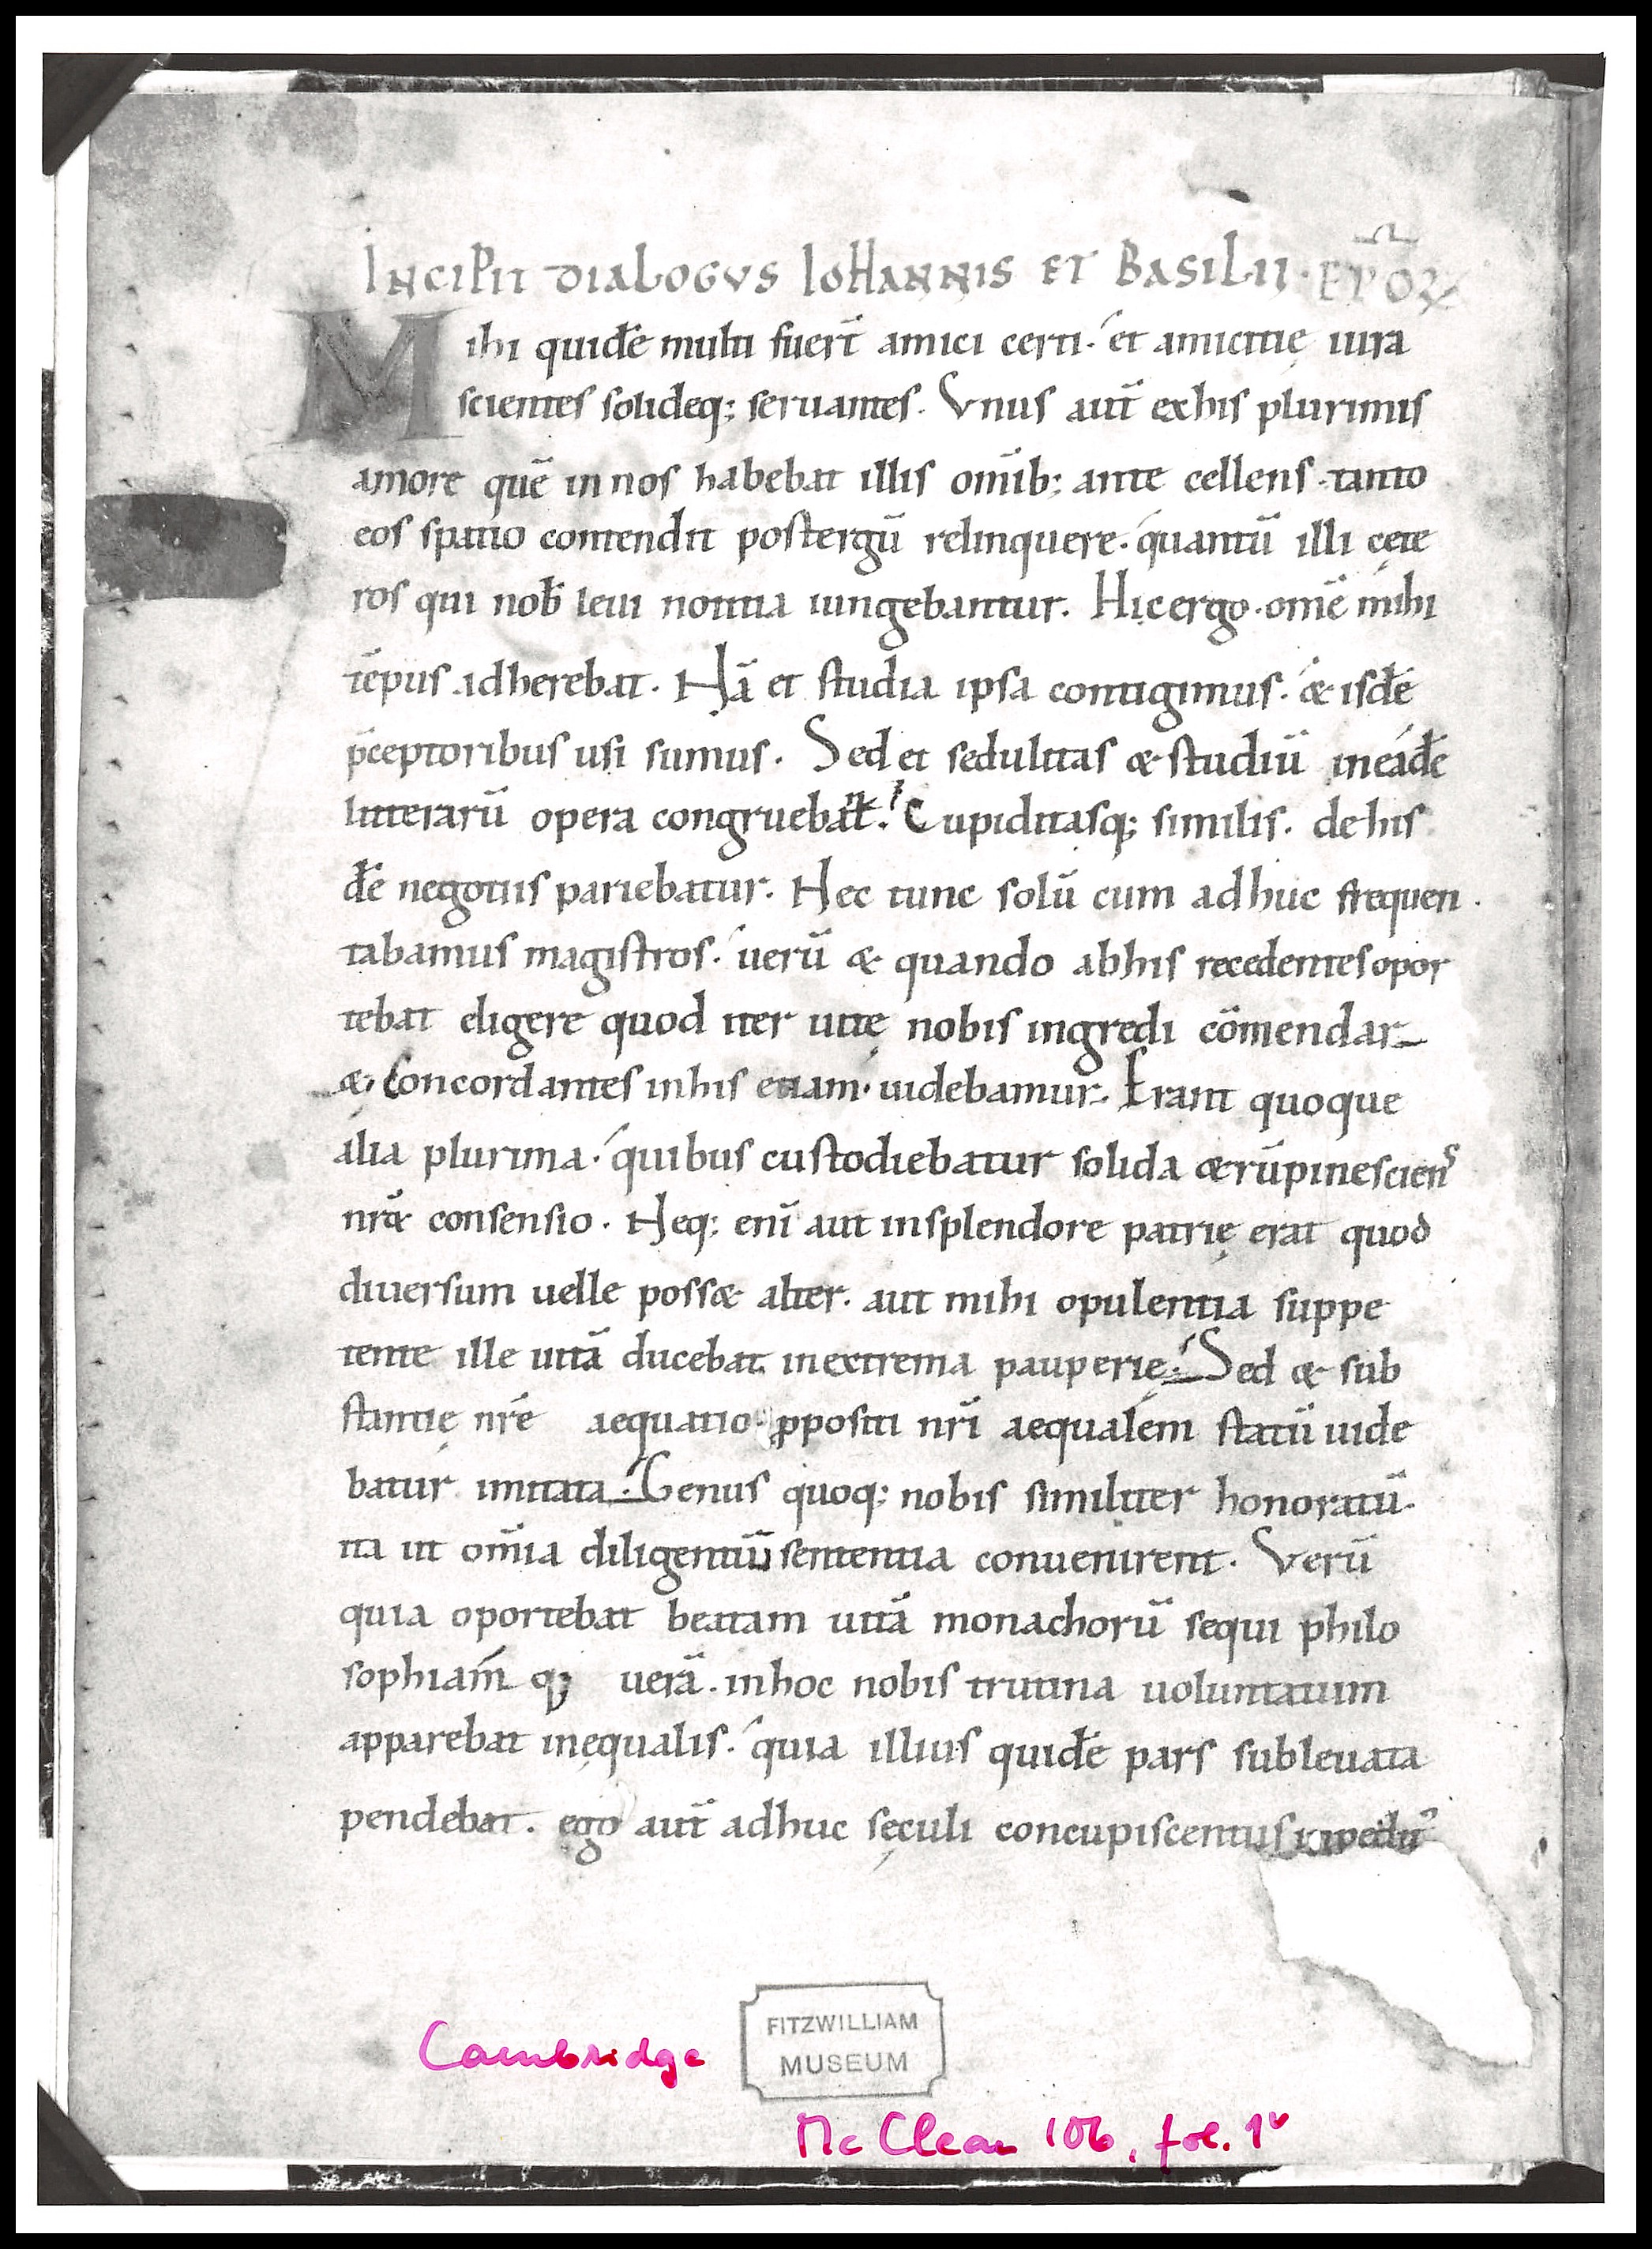 INCIPIT DIALOGVS IOHANNIS ET BASILII· EP̄OꝜ
Mihi quidē multi fuer̄t amici certi· et amicitię iura
scientes solideq; seruantes. Vnus aut̄ exhis plurimis
amore quē in nos habebat illis om̄ib; ante cellens· tanto
eos spatio contendit postergū relinquere· quantū illi cęte
ros qui nob̄ leui notitia iungebantur. Hic ergo· om̄e mihi
tēpus adherebat. Nā et studia ipsa contigimus· & isdē
p̄ceptoribus usi sumus. Sed et sedulitas & studiū ineadē
litterarū opera congruebat. Cupiditasq; similis. de his
dē negotiis pariebatur. Nec tunc solū cum adhuc frequen
tabamus magistros· uerū & quando abhis recedentes opor
tebat eligere quod iter uitę nobis ingredi cōmendar
&· Concordantes inhis etiam· uidebamur. Erant quoque
alia plurima· quibus custodiebatur solida &
nr̄a consensio. Neq; eni aut insplendore patrię erat quod
diuersum uelle poss& alter. aut mihi opulentia suppe
tente ille uitā ducebat inextrema pauperie· Sed & sub
stantię nr̄e aequatio ꝓpositi nr̄i aequalem statū uide
batur imitata· Genus quoq; nobis similiter honoratū·
ita ut om̄ia diligentiū sententia conuenirent. Verū
quia oportebat beatam uitā monachorū sequi philo
sophiam q; uerā. inhoc nobis trutina uoluntatum
apparebat inęqualis· quia illius quidē pars subleuata
pendebat. ego aut̄ adhuc sęculi concupiscentiis
FITZWILLIAM
MUSEUM
Cambridge
Mc Clean 106, fol. 1ᵛ